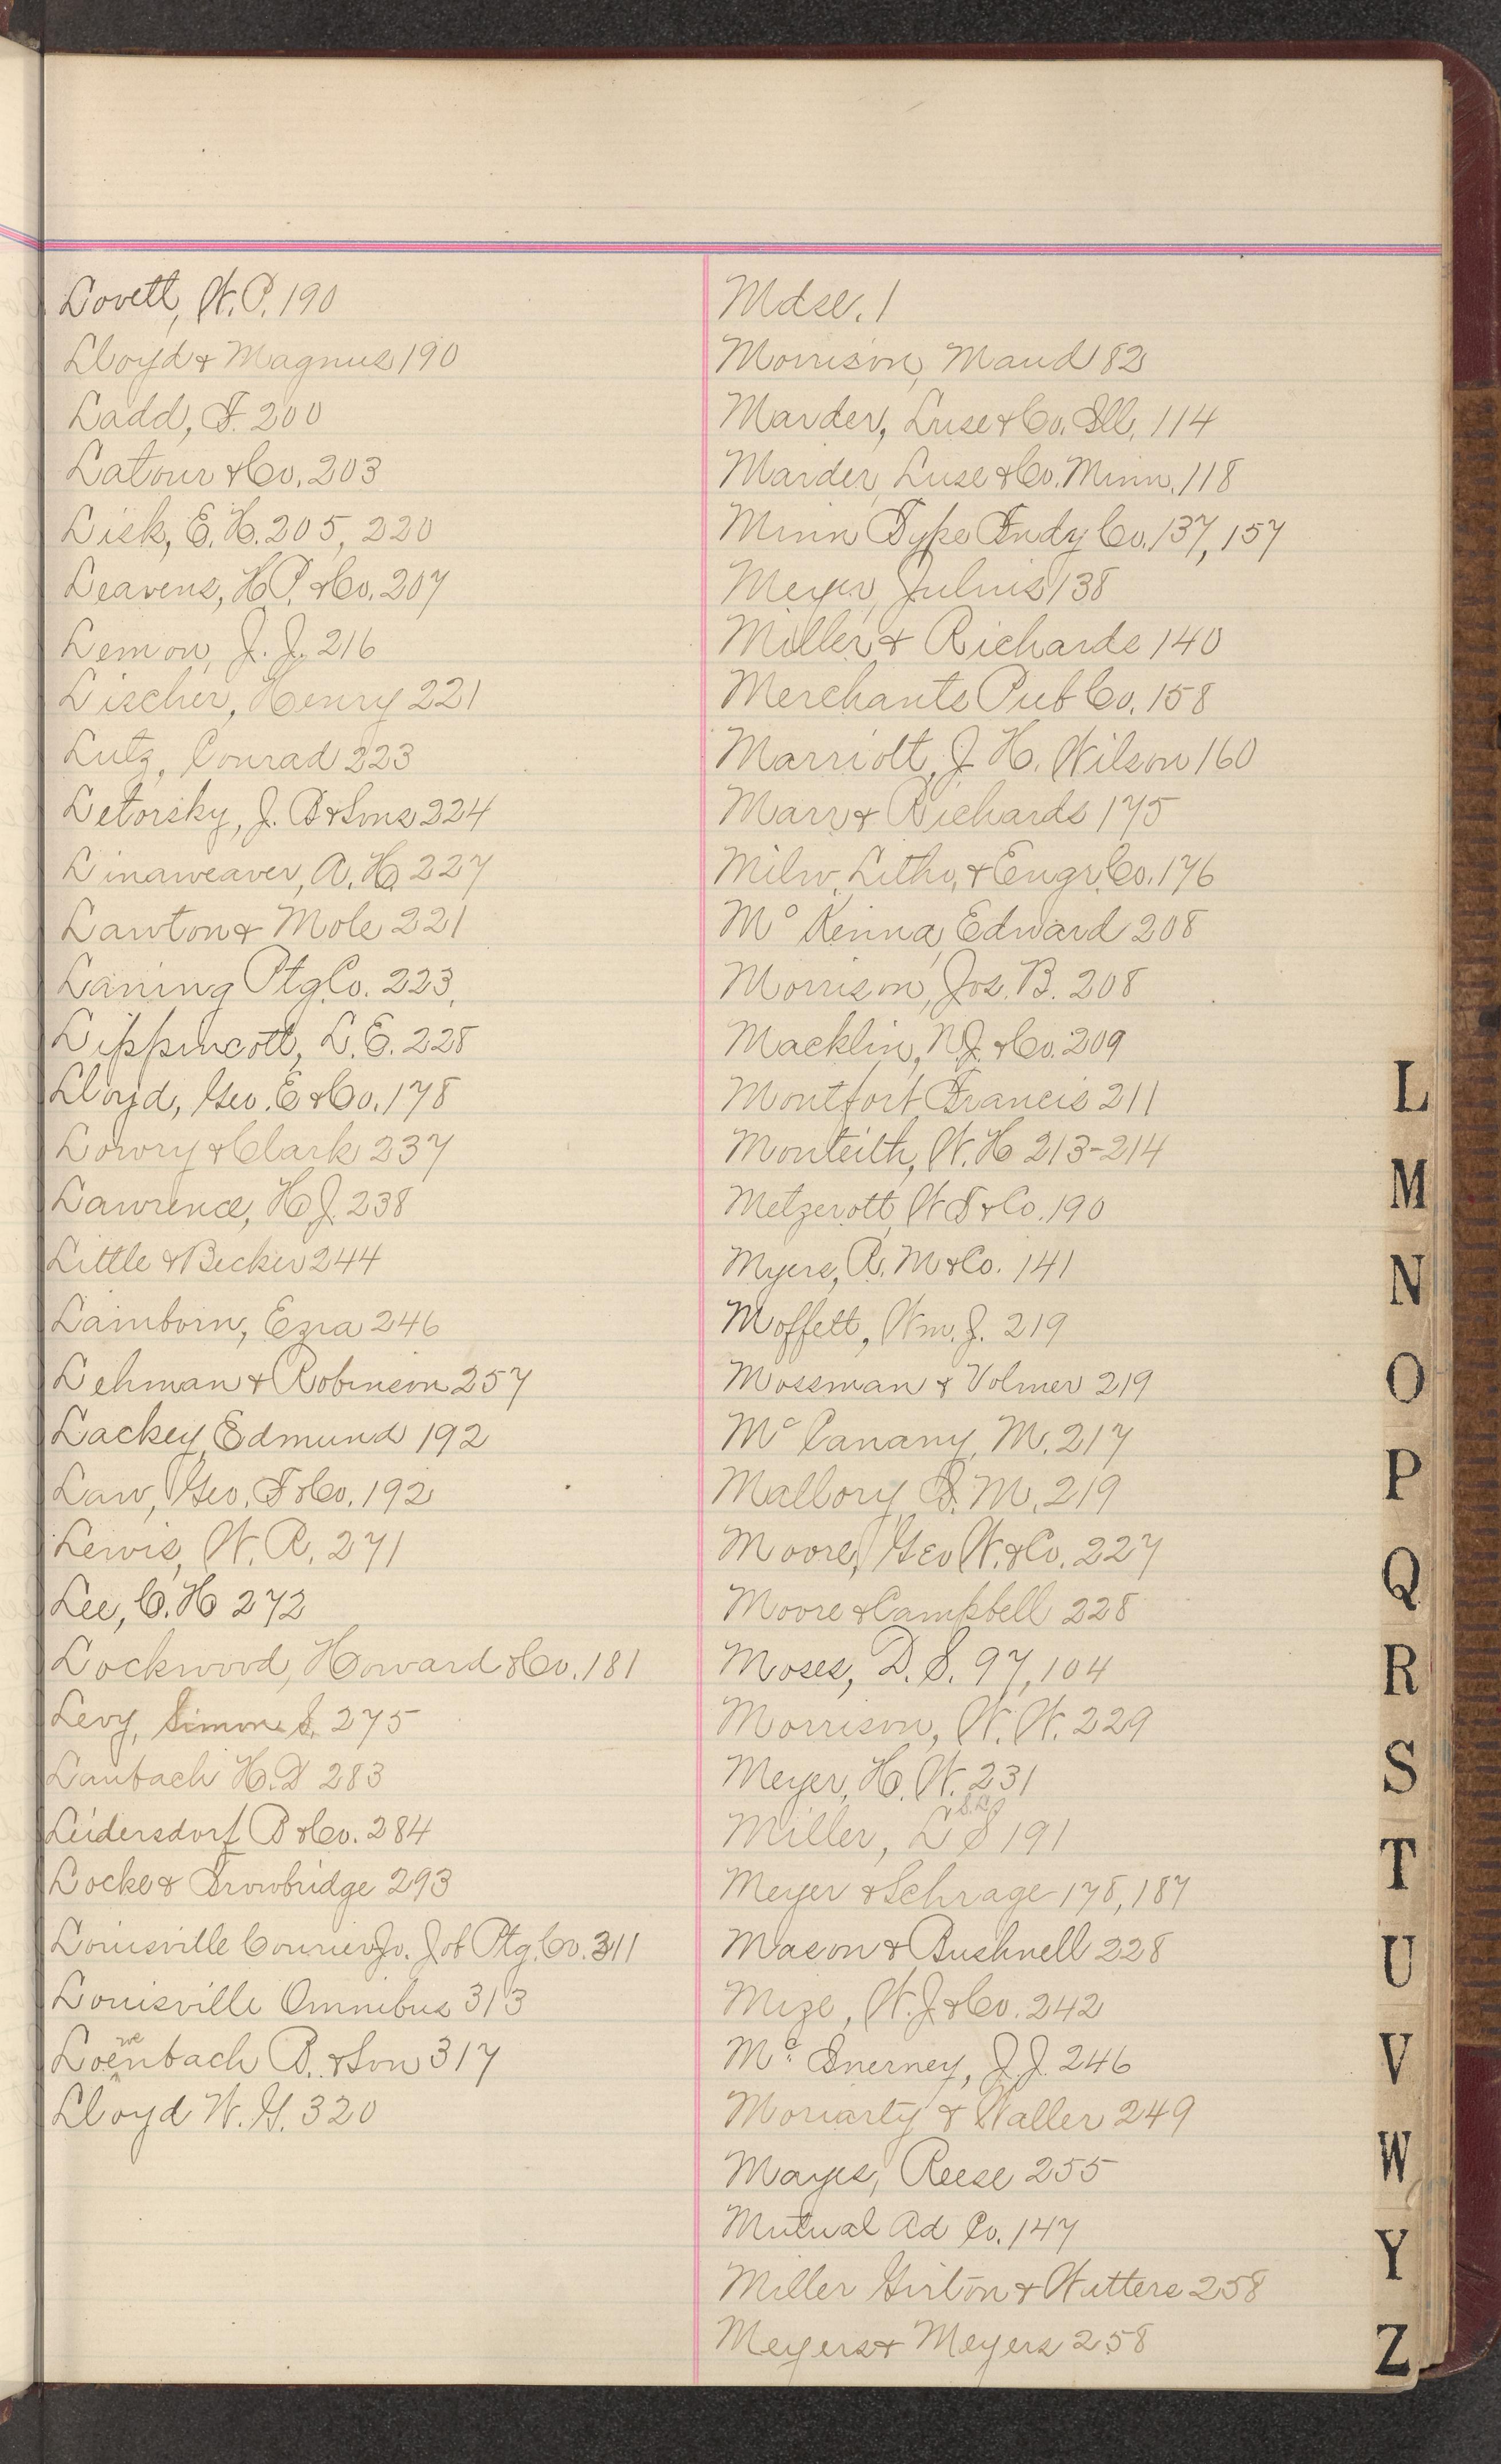 Lovett, W. P. 190
Lloyd & Magnus 190
Ladd, F. 200
Latour & Co. 203
Lisk, E. H. 205, 220
Leavens, H P. & Co. 207
Lemon, J. J. 216
Lischer, Henry 221
Lutz, Conrad 223
Letorsky, J. B & Sons 224
Linaweaver, A. H 227
Lawton & Mole 221
Laning Ptg Co. 223
Lippincott, L. E. 228
Lloyd, Geo. E & Co. 178
Lowry & Clark 237
Lawrence, H J. 238
Little & Becker 244
Lamborn, Ezra 246
Lehman & Robinson 257
Lackey, Edmund 192
Law, Geo. F & Co. 192
Lewis, W. R. 271
Lee, C. H 272
Lockwood, Howard & Co. 181
Levy, Simon S. 275
Laubach H. D 283
Leidersdorf B & Co. 284
Locke & Trowbridge 293
Louisville Courier Jo. Job Ptg. Co. 311
Louisville Omnibus 313
we
Loenbach B. & Son 317
Lloyd W. G. 320
Mdse. 1
Morrison, Maud 82
Marder, Luse & Co. Ill. 114
Marder, Luse & Co. Minn. 118
Minn Type Fndy Co. 137, 157
Meyer, Julius 138
Miller & Richards 140
Merchants Pub Co. 158
Marriott, J. H. Wilson 160
Marr & Richards 175
Milw. Litho. & Engr. Co. 176
Mc Kenna, Edward 208
Morrison, Jos. B. 208
Macklin, N. J. & Co. 209
Montfort, Francis 211
Monteith, W. H 213-214
Metzerott, W S & Co. 190
Myers, R. M & Co. 141
Moffett, Wm. J. 219
Mossman & Volmer 219
Mc Canany, M. 217
Mallory S. M. 219
Moore, Geo W. & Co. 227
Moore & Campbell 228
Moses, D. S. 97, 104
Morrison, W. W. 229
Meyer, H. W. 231
Miller, L S 191
Meyer & Schrage 178, 187
Mason & Bushnell 228
Mize, W. J & Co. 242
Mc Inerney, J. J. 246
Moriarty & Waller 249
Mayes, Reese 255
Mutual Ad Co. 147
Miller Girton & Watters 258
Meyers & Meyers 258
L
M
N
O
P
Q
R
S
T
U
V
W
Y
Z